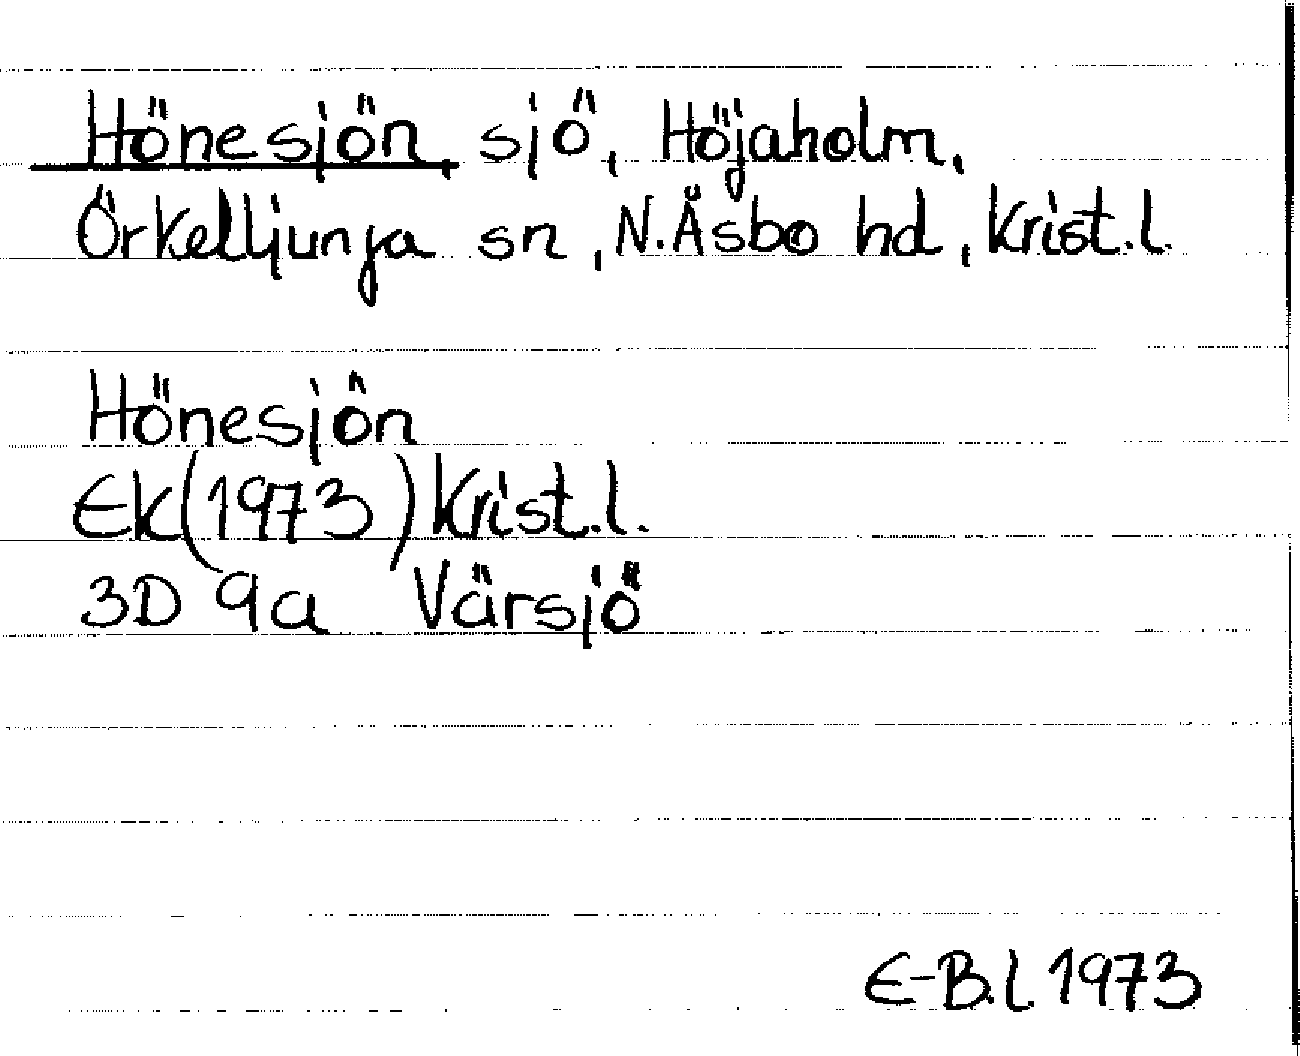 Hönesjön, sjö, Höjaholm,
Örkelljunga sn, N.Åsbo hd, Krist.l.
Hönesjön
Ek(1973) Krist.l.
3D 9a Värsjö
E-B.l. 1973